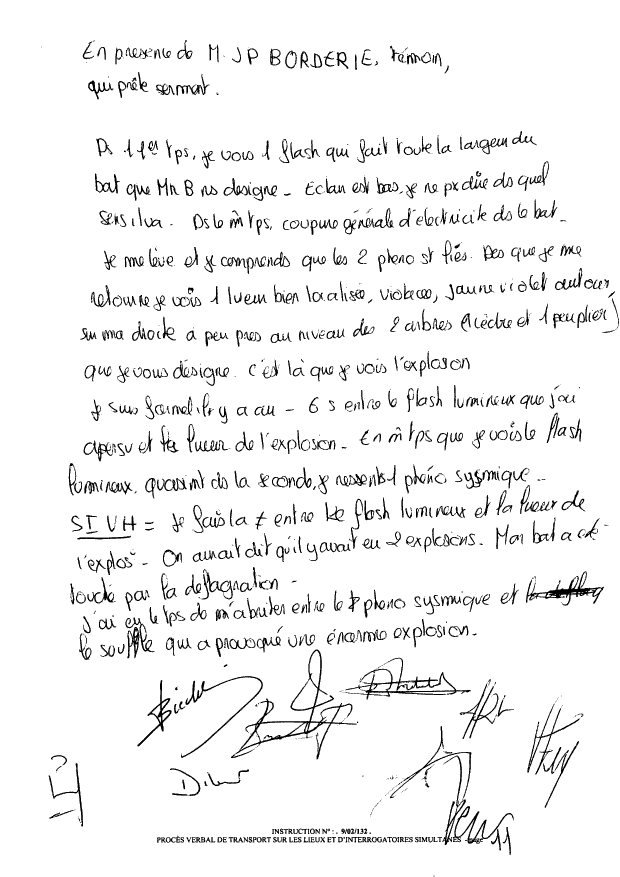 En presence de M. JP BORDERIE, témoin,
qui prête serment.
Ds 1 1er tps, je vois 1 flash qui fait toute la largeur du
bat que Mr B ns designe - Eclair est bas, je ne px dire ds quel
sens il va. Ds le m̂ tps, coupure générale d'electricité ds le bat -
Je me lève et je comprends que les 2 pheno st liés. Des que je me
retourne je vois 1 lueur bien localisée, violacée, jaune violet autour,
sur ma droite à peu pres au niveau des 2 arbres (1 cèdre et 1 peuplier)
que je vous désigne. C'est là que je vois l'explosion
Je suis formel il y a au - 6 s entre le flash lumineux que j'ai
aperçu et la lueur de l'explosion - En m̂ tps que je vois le flash
lumineux, quasimt ds la seconde, je ressents 1 phéno sysmique -
SI VH = Je fais la ≠ entre le flash lumineux et la lueur de
l'explos° - On aurait dit qu'il y avait eu 2 explosions. Mon bat a été
touché par la deflagration -
j'ai eu le tps de m'abriter entre le pheno sysmique et
le souffle qui a provoqué une énorme explosion -
INSTRUCTION N° : . 9/02/132 .
PROCÈS VERBAL DE TRANSPORT SUR LES LIEUX ET D'INTERROGATOIRES SIMULTANES - page 11